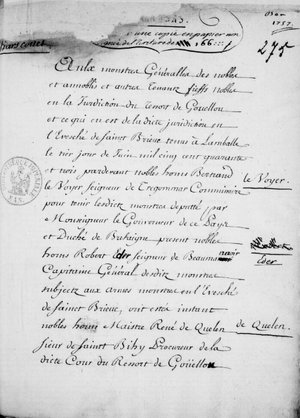 1757.
une copie en papier non
275
En la monstra Généralle des nobles
et annoblis et autres tenants fieffs nobles
en la Juridiction du ressort de Gouellou
et ce qui en est de la dicte jurisdiction en
l'Evesché de Sainct Brieuc tenu à Lamballe
le 1er jour de Juin mil cinq cent quarante
et trois pardevant nobles homs Bertrand
le Voyer, seigneur de Tregomar Commissaire
le Voyer.
pour tenir lesdicts monstres deputté par
Monseigneur le Gouverneur de ce Pays
et Duché de Bretaigne present noble
homs Robert Eder seigneur de Beaumanoir
Eder
Capitaine Général desdits monstres
subjects aux armes monstres en l'Evesché
de Sainct Brieuc, ont estés instant
nobles homs Maistre René de Quelen
de Quelen.
sieur de Sainct Bihy Procureur de la
dicte Cour du Ressort de Goüellou